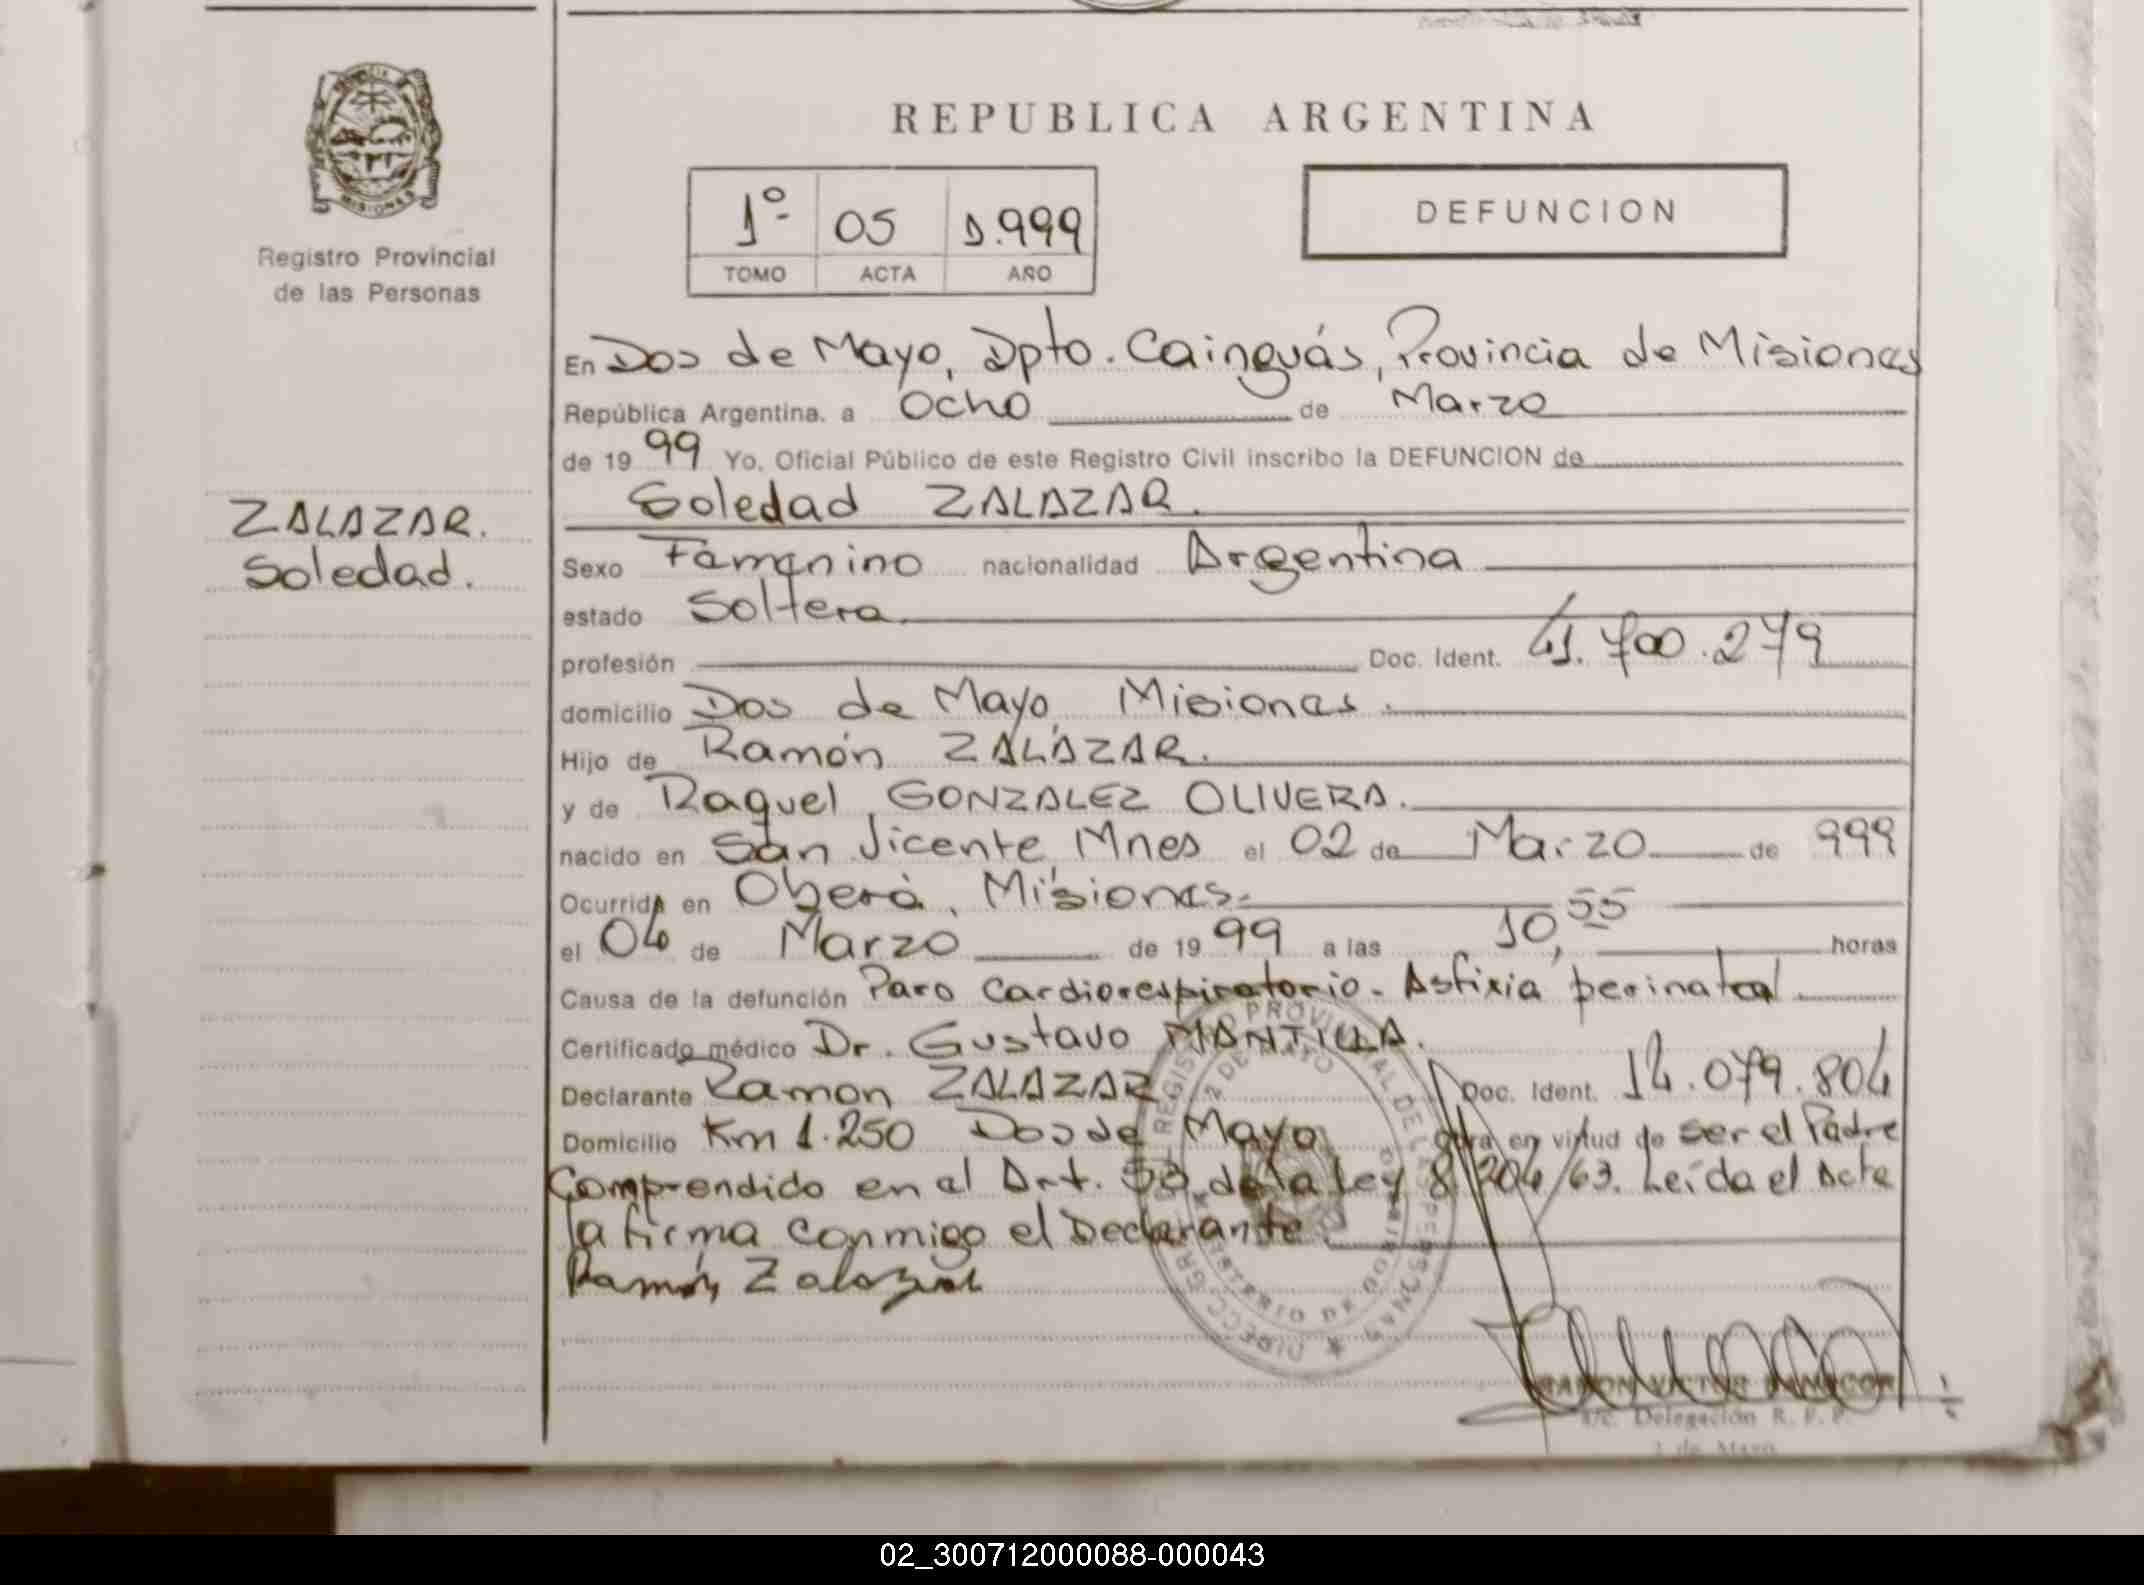 REPUBLICA ARGENTINA
MISIONES
Registro Provincial
de las Personas
1º 05 1.999
TOMO ACTA AÑO
DEFUNCION
ZALAZAR.
Soledad.
En Dos de Mayo, Dpto. Cainguás, Provincia de Misiones
República Argentina. a Ocho de Marzo
de 19 99 Yo, Oficial Público de este Registro Civil inscribo la DEFUNCION de
Soledad ZALAZAR.
Sexo Femenino nacionalidad Argentina
estado Soltera.
profesión Doc. Ident. 41.700.279
domicilio Dos de Mayo, Misiones.
Hijo de Ramón ZALAZAR.
y de Raquel GONZALEZ OLIVERA.
nacido en San Vicente Mnes el 02 de Marzo de 999
Ocurrida en Oberá, Misiones.
el 04 de Marzo de 19 99 a las 10,55 horas
Causa de la defunción Paro Cardiorespiratorio - Asfixia perinatal
Certificado médico Dr. Gustavo MANTILLA.
Declarante Ramon ZALAZAR Doc. Ident. 14.079.804
Domicilio Km 1.250 Dos de Mayo obra en virtud de ser el Padre
Comprendido en el Art. 53 de la Ley 8204/63. Leída el Acta
la firma conmigo el Declarante.
Ramón Zalazar
REGISTRO PROVINCIAL DE LAS PERSONAS
2 DE MAYO
MINISTERIO DE GOBIERNO
RAMON VICTOR
a/c. Delegación R. P. P.
2 de Mayo
02_300712000088-000043